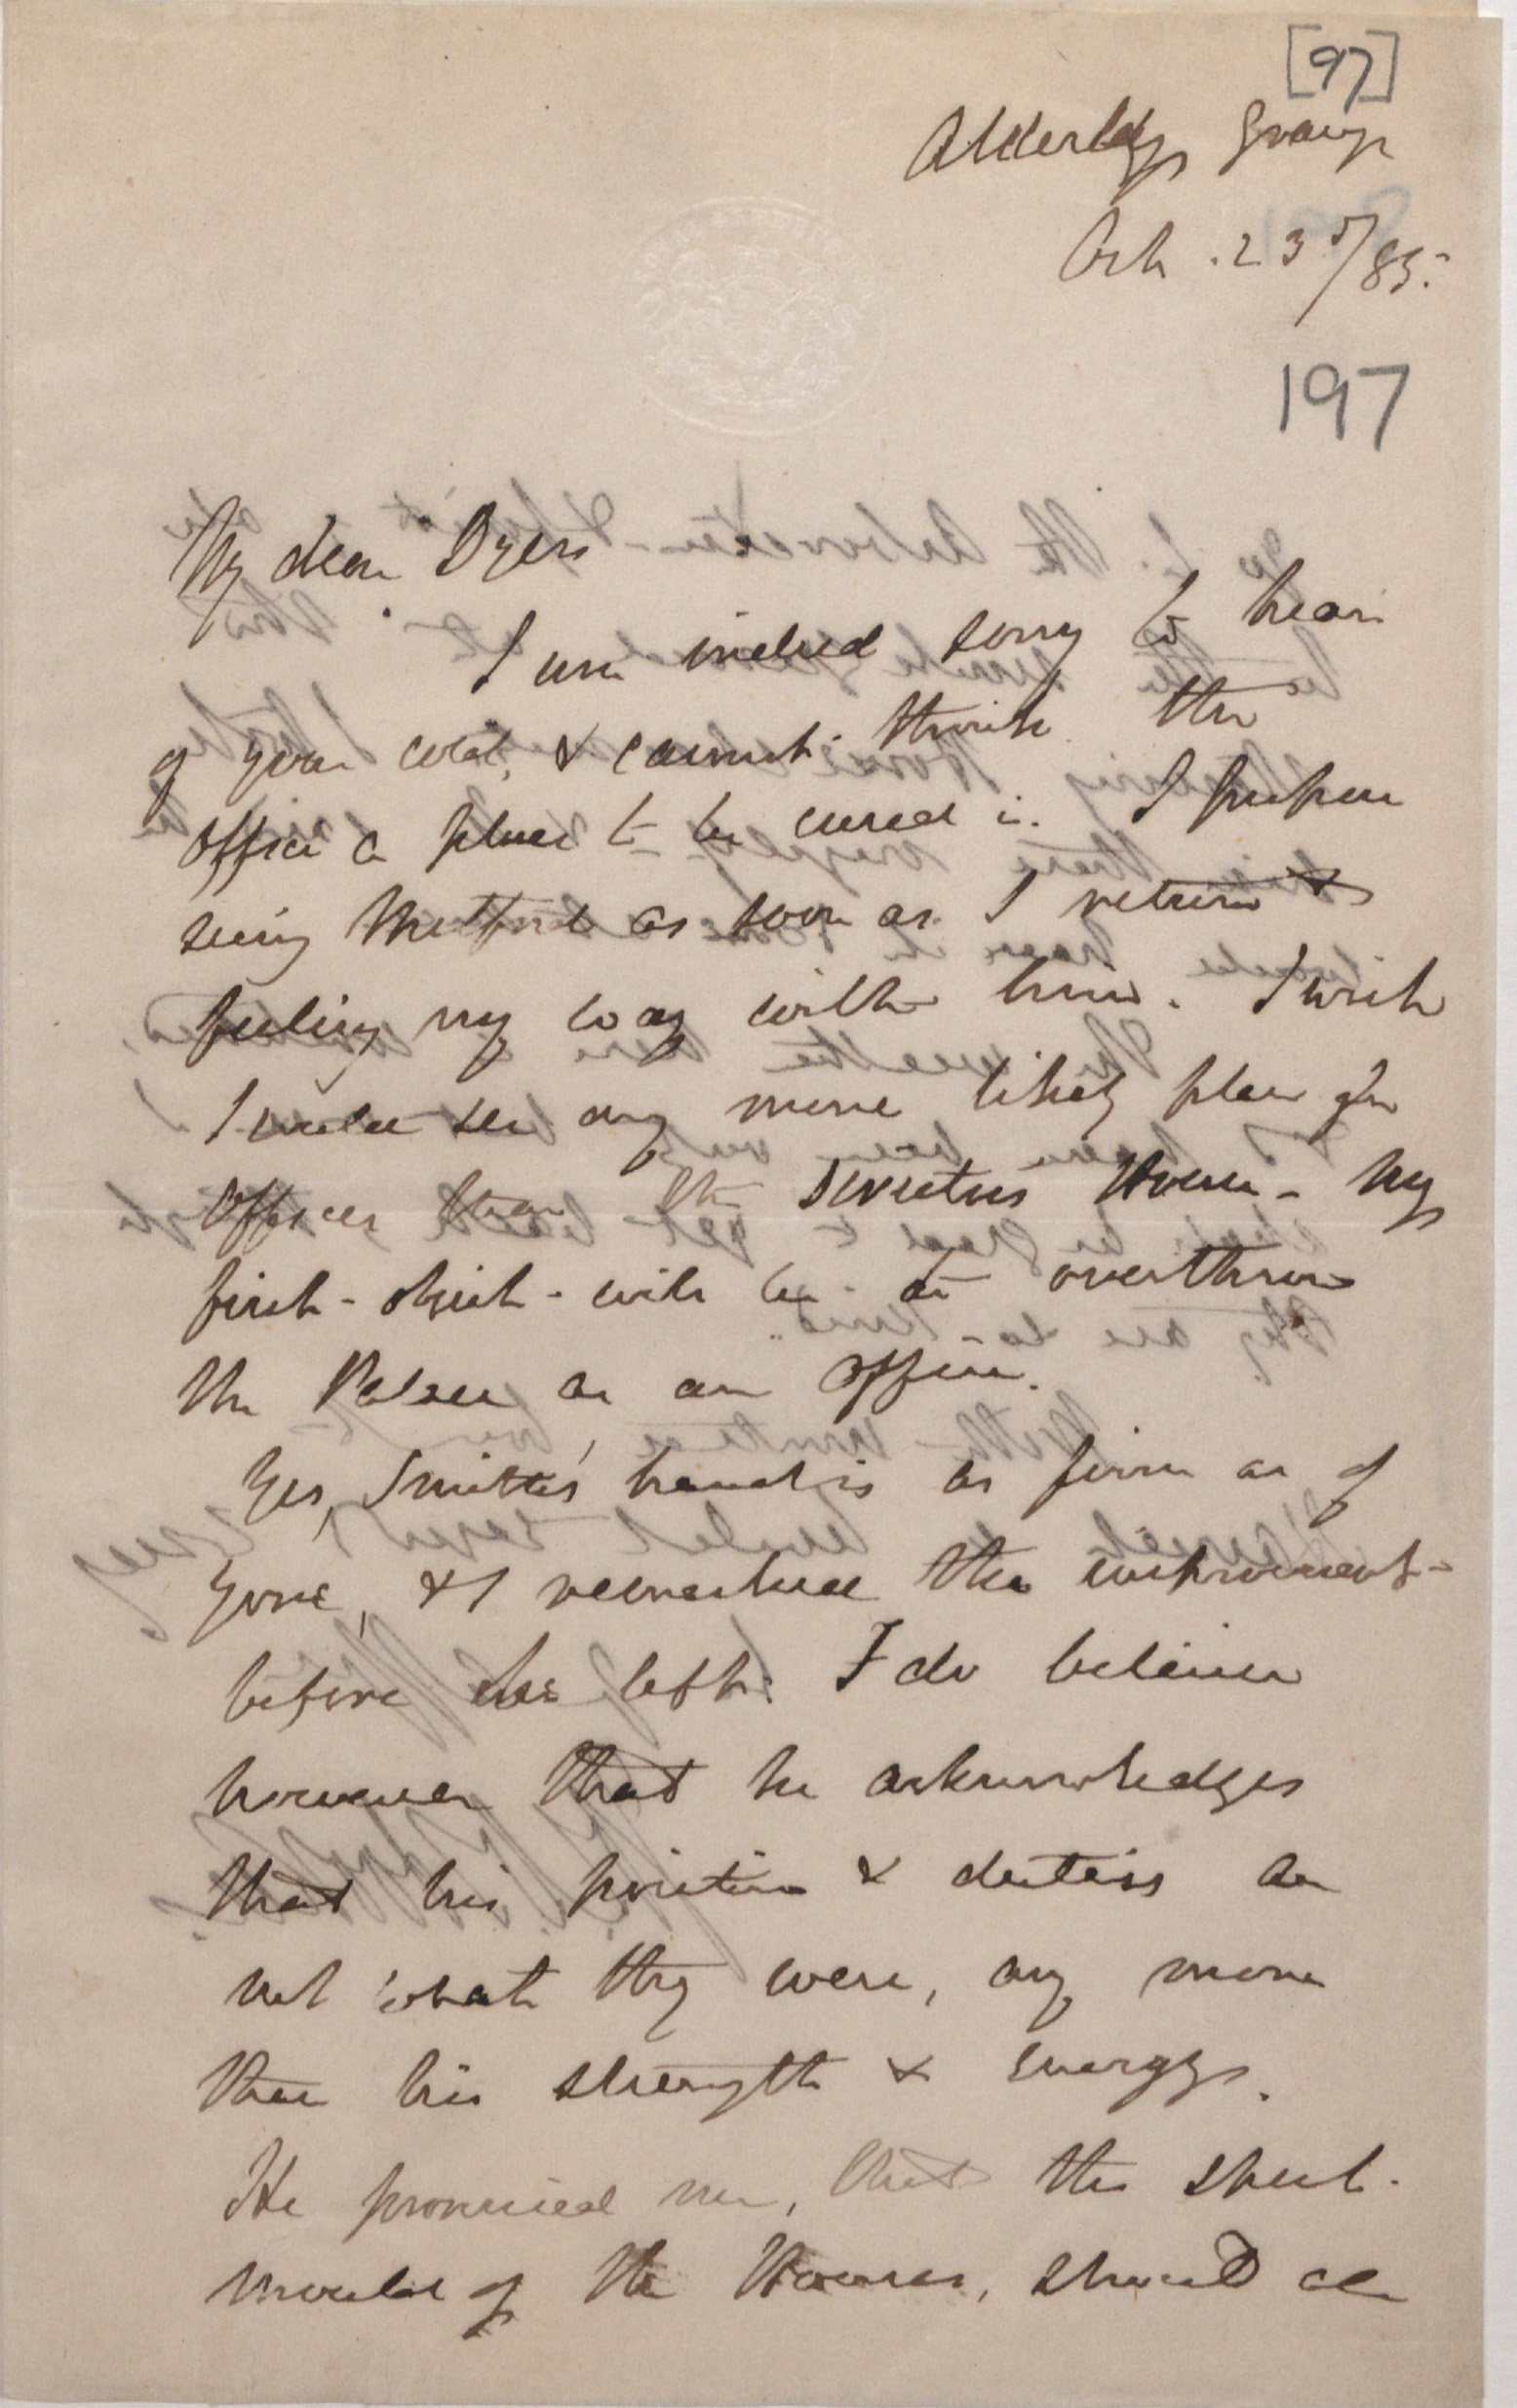 [97]
Alderley Grange
Oct. 23d/85.
197
My dear Dyer
I am indeed sorry to hear
of your cold, & cannot think the
office a place to be cured in. I propose
seeing Mitford as soon as I return &
feeling my way with him. I wish
I could see any more likely place for
Offices than the Director's House - My
first object will be to overthrow
the Palace as an office.
Yes, Smith's hand is as firm as of
yore, & I remarked the improvement
before he left. I do believe
however that he acknowledges
that his position & duties are
not what they were, any more
than his strength & energy.
He promised me, that the
of the Houses, should all